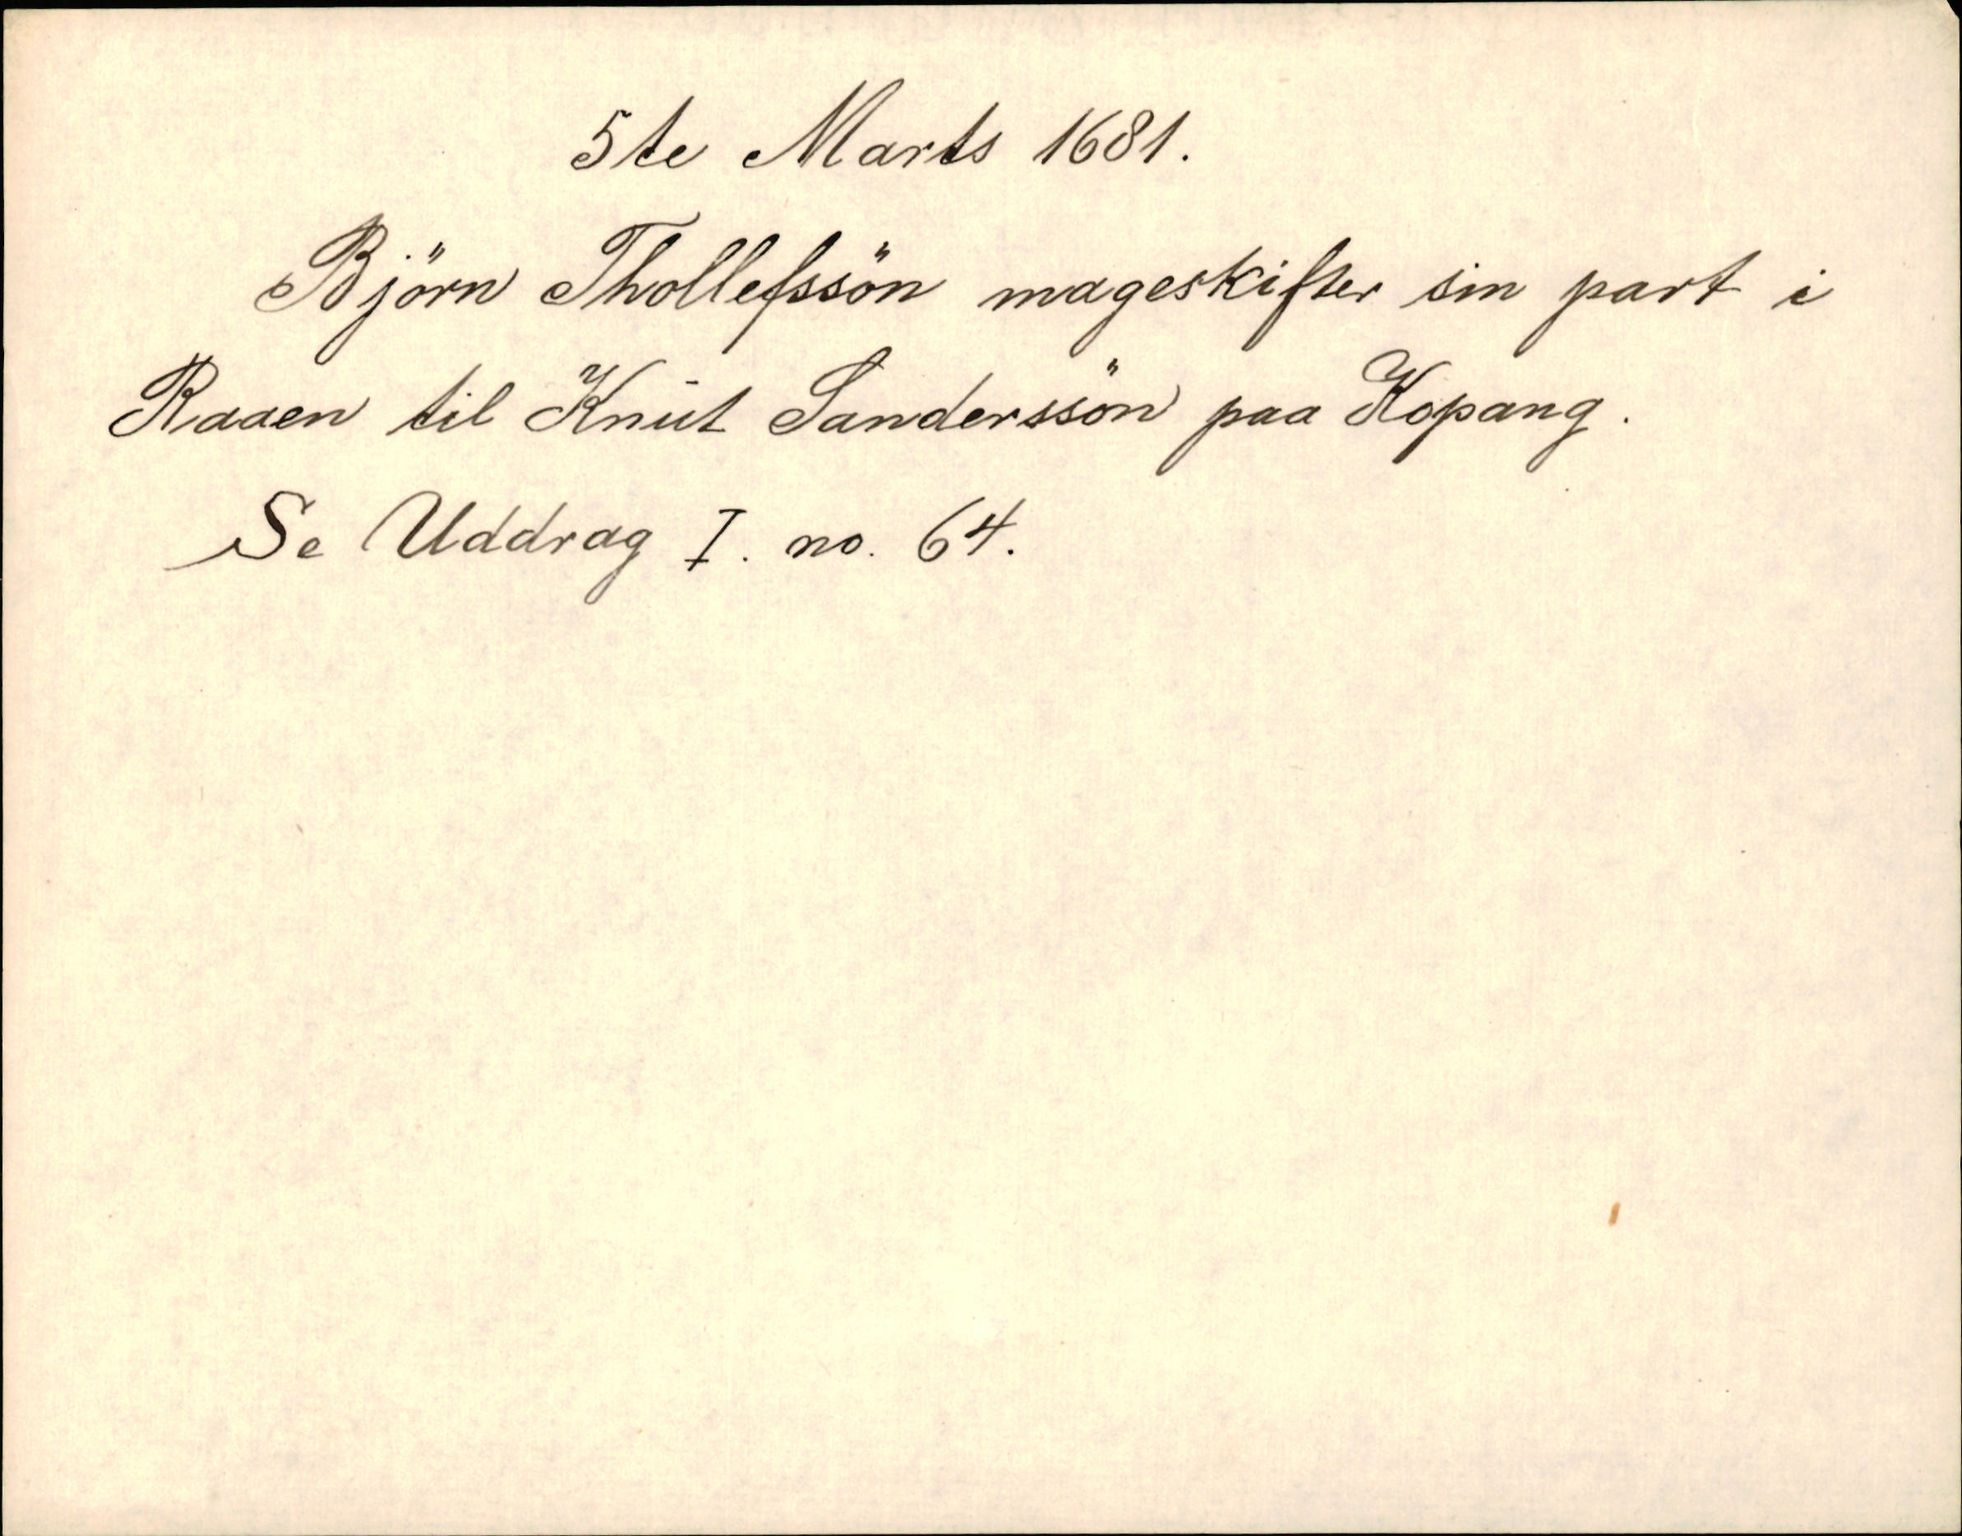 5te Marts 1681.
Björn Thollefssön mageskifter sin part i
Raaen til Knut Sanderssön paa Kopang.
Se Uddrag I. no. 64.